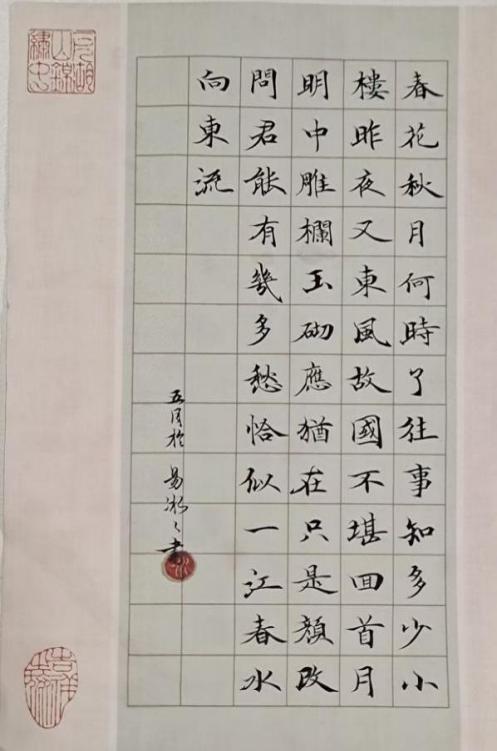 春花秋月何時了往事知多少小
樓昨夜又東風故國不堪回首月
明中雕欄玉砌應猶在只是顏改
問君能有幾多愁恰似一江春水
向東流
五月於